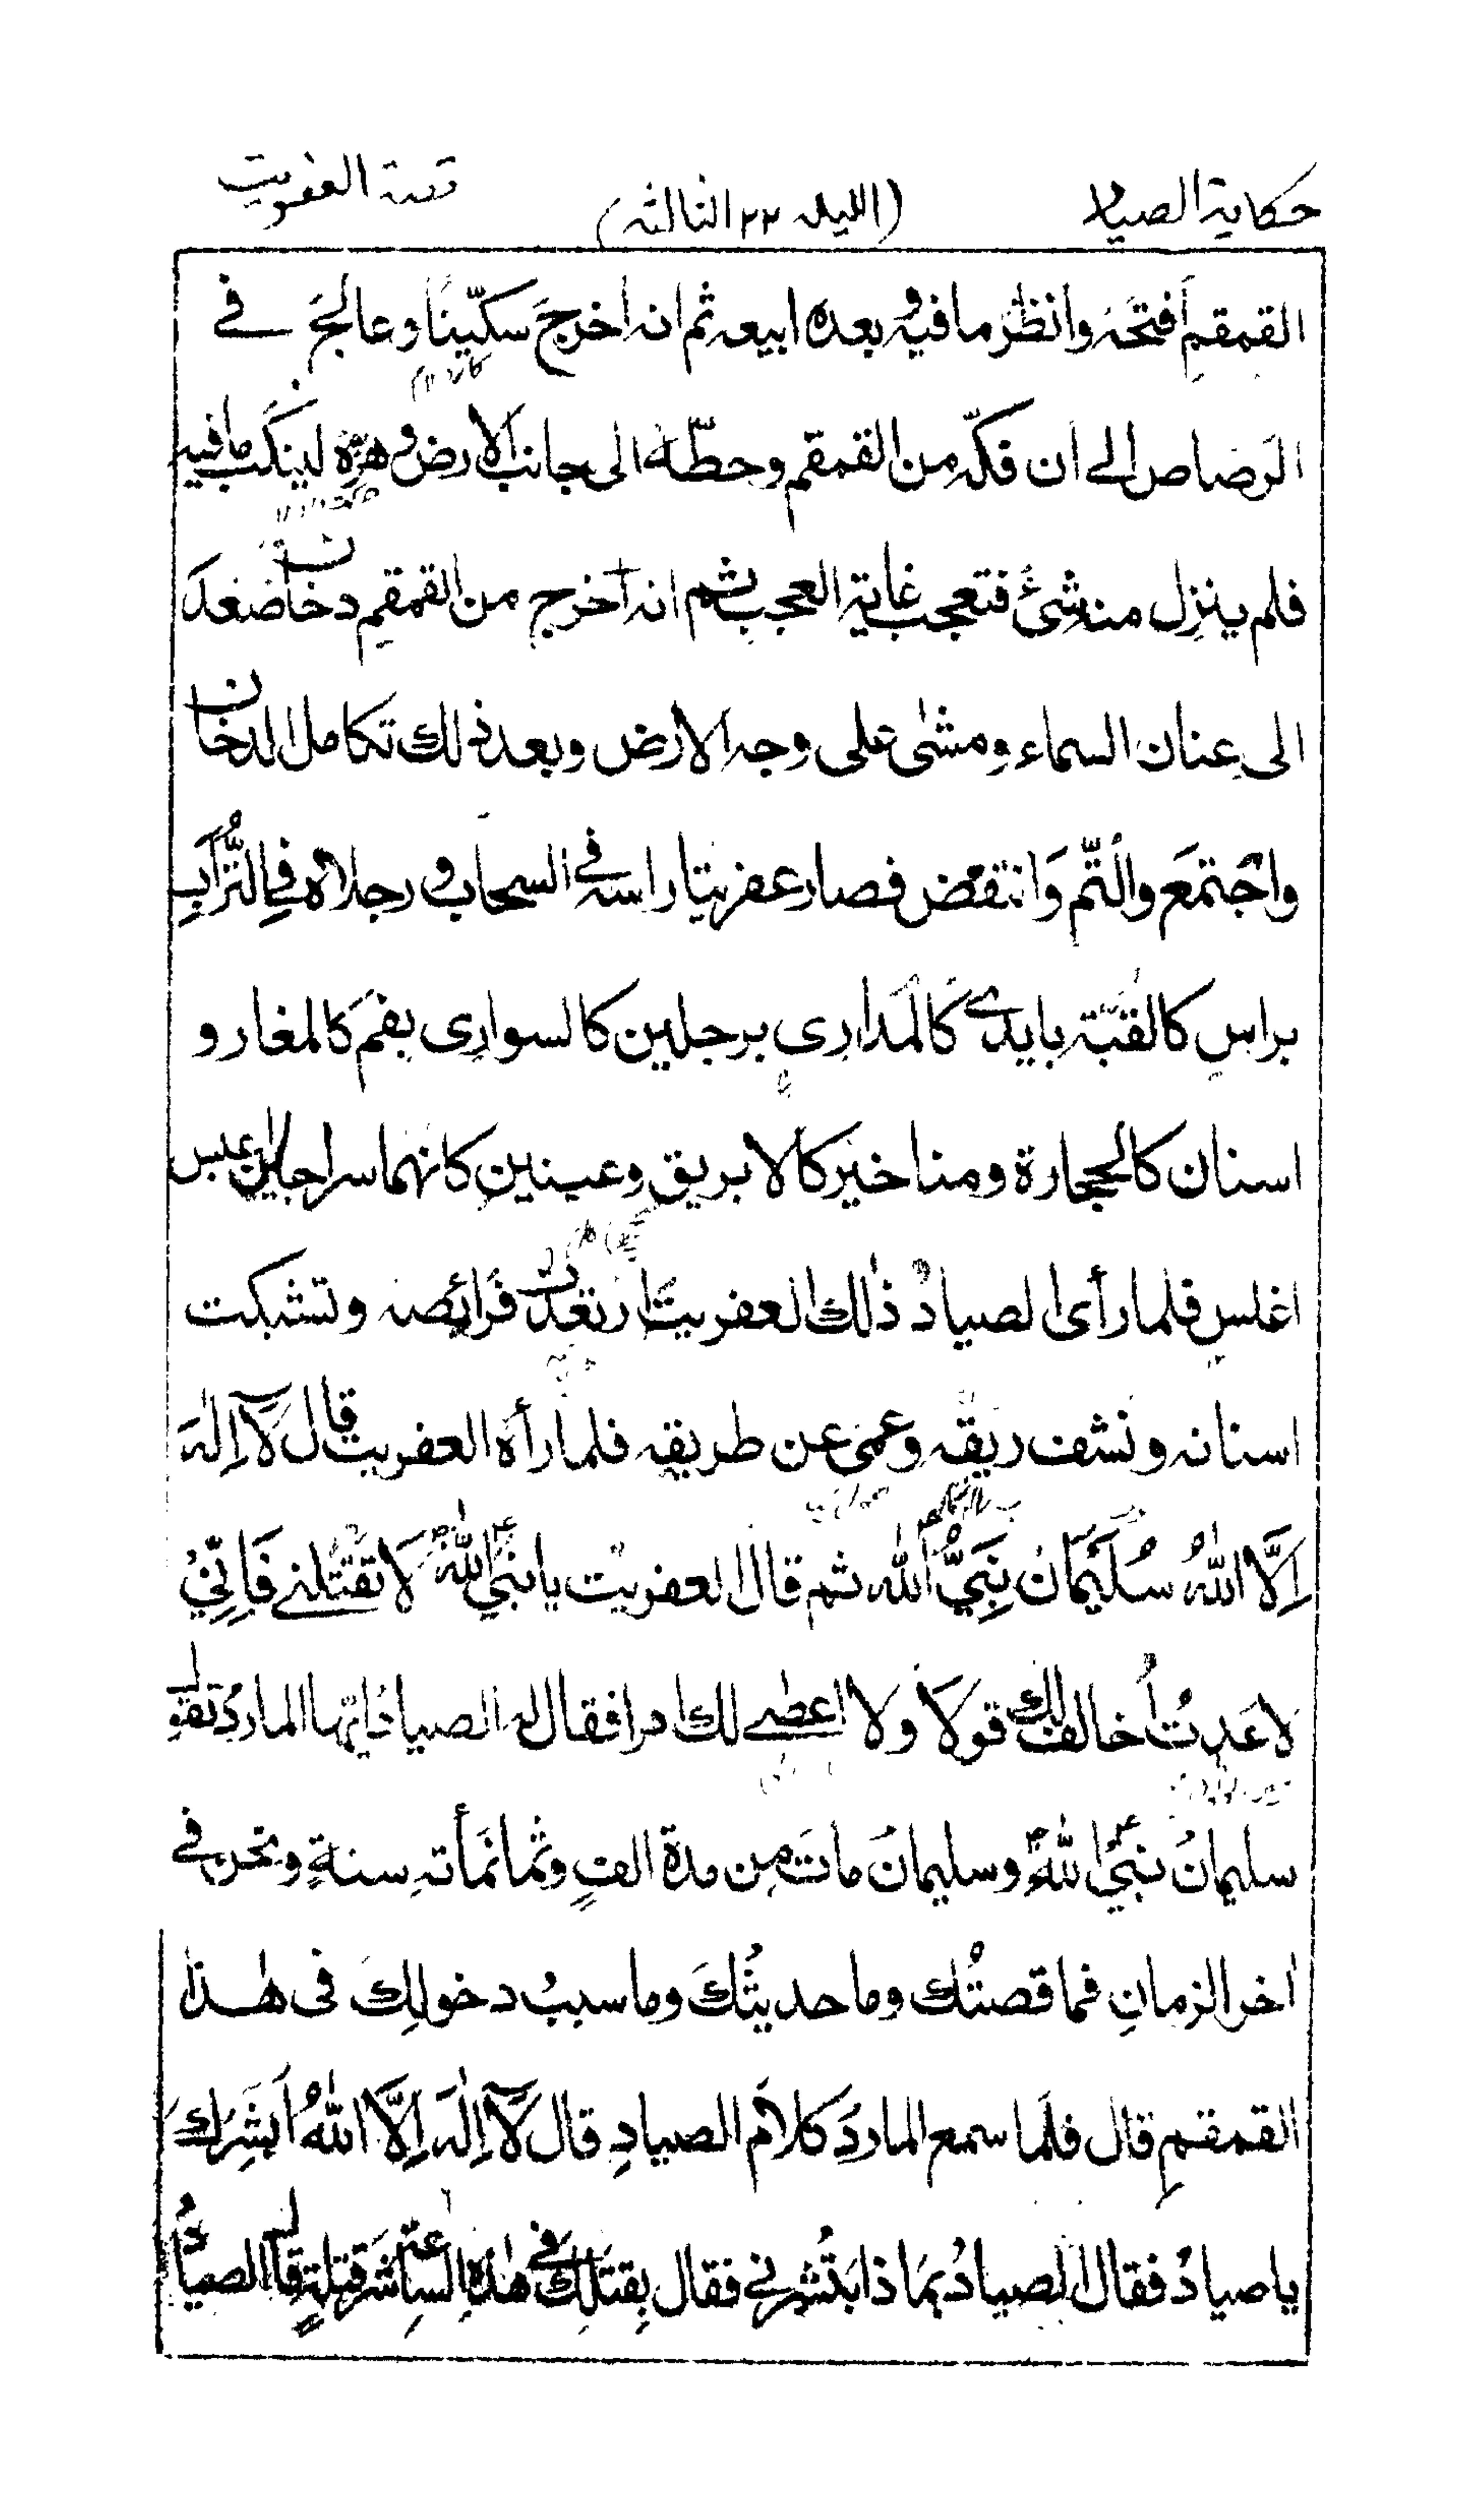 حكاية الصياد (الليلة ٢٣ الثالثة) قصة العفريت
القمقمِ اَفتحَه وانظرُ ما فيه وبعده ابيعه ثم انه اخرجَ سكِّينًا وعالجَ في
الرَصاص الى ان فكّه من القمقم وحطّه الى جانب الارض وهزّه لينكبّ ما فيه
فلم ينزِل منه شئ فتعجب غاية العجب ثم انه اخرج من القمقمِ دخان صَعَدَ
الى عِنان السماء ومشىٰ على وجه الارض وبعد ذلك تكامل الدخان
واجْتمَعَ والْتَمّ وَانتفض فصار عفريتا راسه فى السحاب ورجلاه فى التُّرَابِ
براسِ كالقُبّة بايدى كالمَدارِى برجلين كالسوارِى بفمَ كالمغار و
اسنان كالحجارة ومناخيَر كالابريق وعينين كانهما سراجين اعبس
اغلس فلما رأى الصيادُ ذٰلك العفريتَ ارتعدت فَرَائِصه وتشبكت
اسنانه ونشف ريقَه وعمى عن طريقه فلما رأهُ العفريت قال لَآ اِلٰهَ
اِلَّا اللّٰهُ سُلَيْمَانُ نَبِىُّ اللّٰه ثم قال العفريتْ يا نبىَّ اللّٰهِ لَا تَقْتُلنى فَاِنِّىْ
لا عَدتُ اُخالف لك قولاً ولا اعطى لك امرا فقال له الصيادُ ايّها الماردُ تقول
سليمانُ نبىُّ اللّٰهِ وسليمانُ ماتَ مِن مدة الفٍ وثمانمأتهِ سنةٍ ونحن فى
اٰخر الزمانِ فما قصتُك وما حديثُكَ وما سببُ دخولِكَ فى هٰذا
القمقمِ قال فلَما سمع الماردَ كلاَم الصيادِ قال لَآ اِلٰهَ اِلَّا اللّٰهُ اَبْشِركَ
يا صيادُ فقال الصيادُ بمَا ذا تُبَشِّرنى فقال بِقتلِك فى هٰذِه الساعة اشر قتلةٍ قال الصيادُ